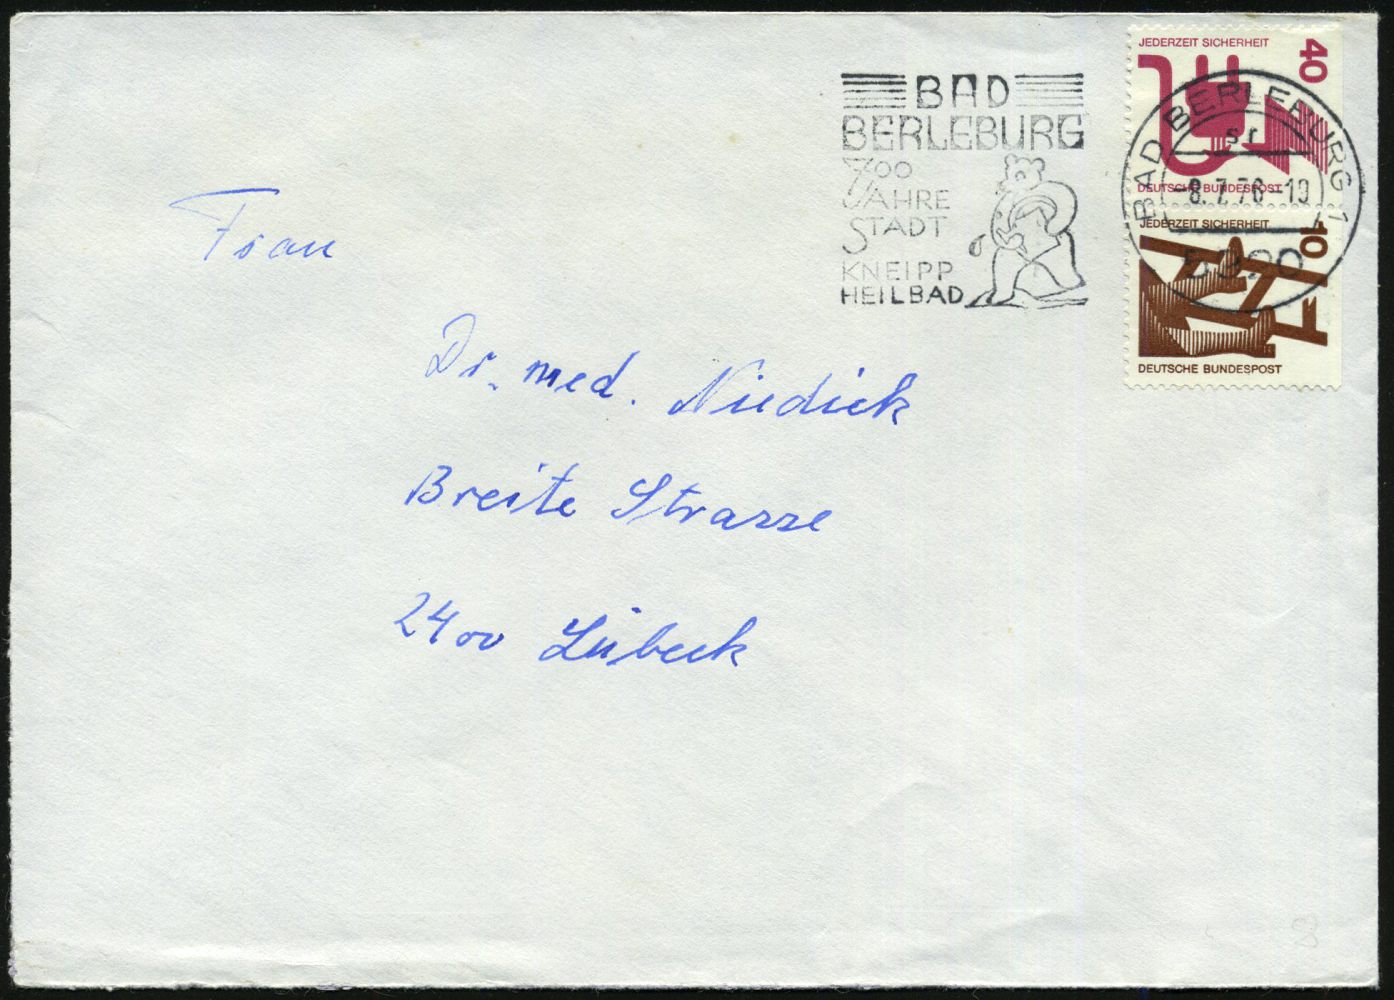 BAD
BERLEBURG
700
JAHRE
STADT
KNEIPP
HEILBAD
JEDERZEIT SICHERHEIT
40
DEUTSCHE BUNDESPOST
JEDERZEIT SICHERHEIT
10
DEUTSCHE BUNDESPOST
BAD BERLEBURG 1
sr
-8.7.76-19
5920
Frau
Dr. med. Niedick
Breite Strasse
2400 Lübeck